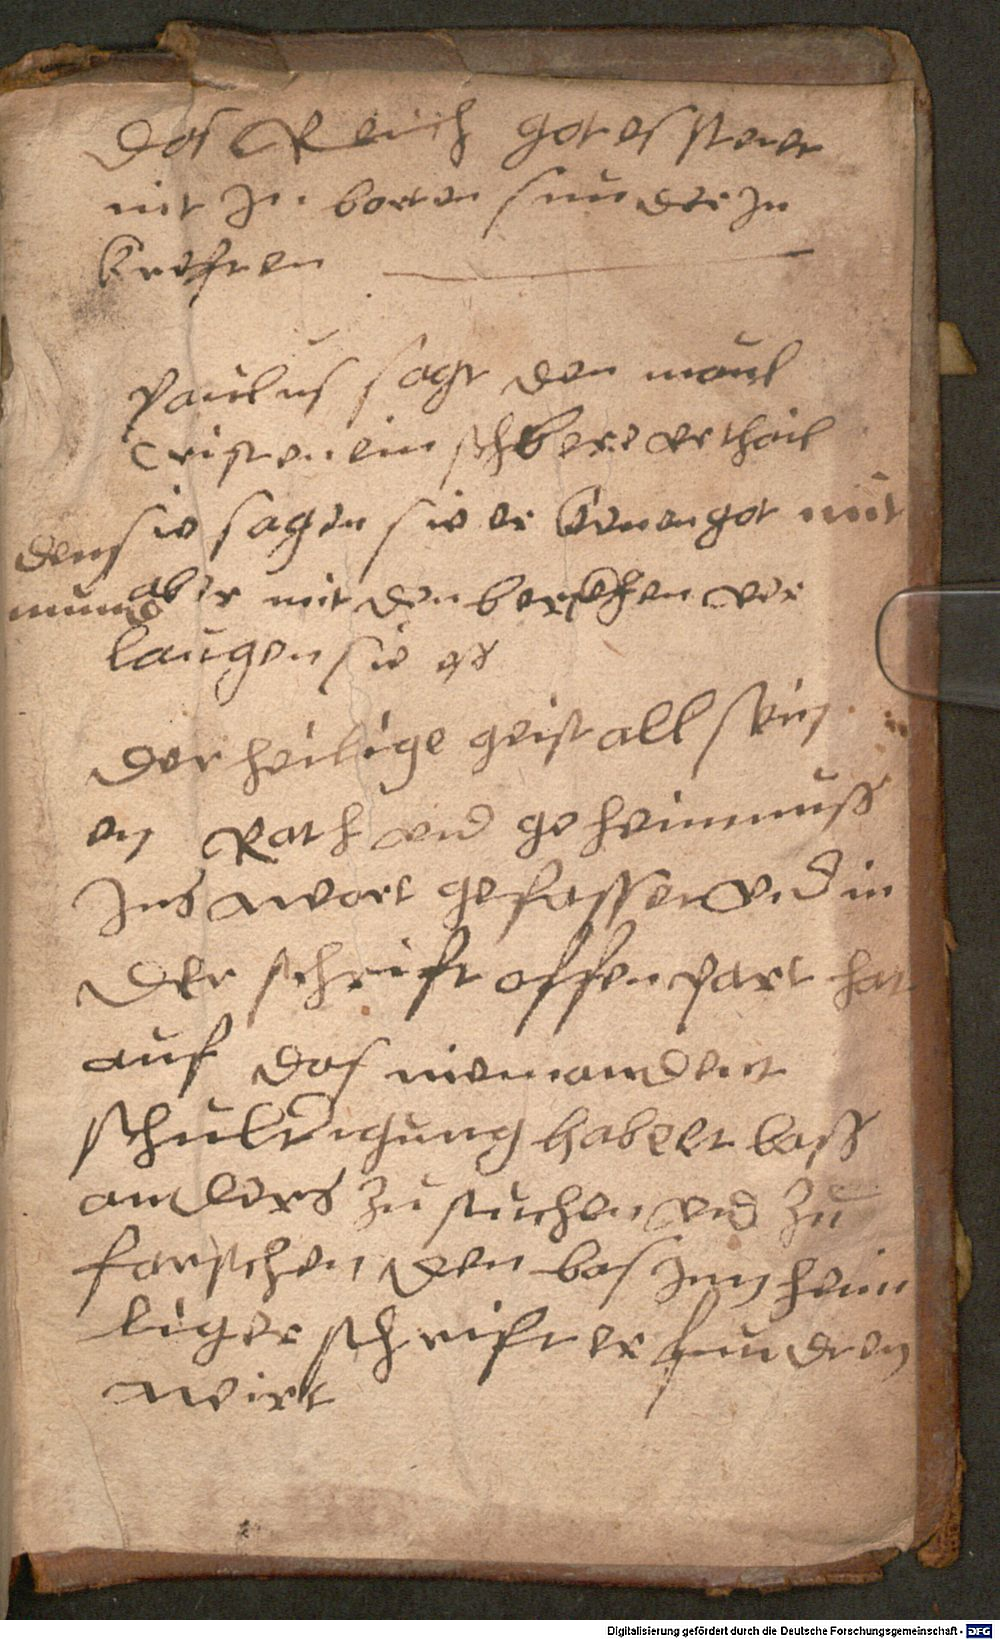 Das Reich gotes steet
nit In borten sunder In
kreften
Paulus sagt den maul
Cristen ein schbere vrthail
sie sagen sie er kenen got mit
dem
mund
aber mit den bercken ver
laugen sie es
Der heilige geist all sein
en Rath vnd geheimnuss
Ins wort gefasset vnd in
Der schrift offenpart hat
auf das niemandt ent
schuldigung habe et bass
anders zu suchen vnd zu
forschen den bas Inn heim
liger schrift er funden
wirt
Digitalisierung gefördert durch die Deutsche Forschungsgemeinschaft - DFG